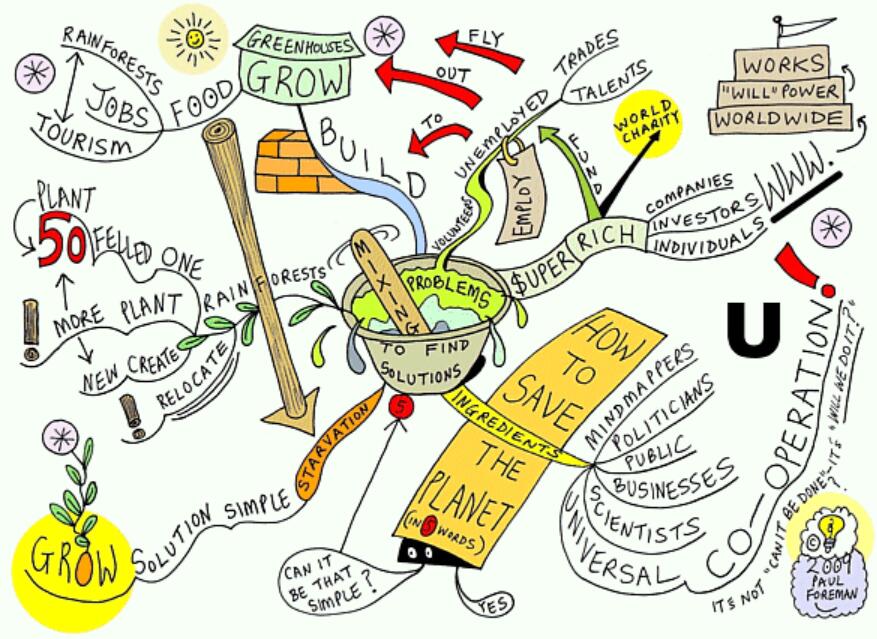 RAINFORESTS
JOBS
TOURISM
FOOD
GREENHOUSES
GROW
BUILD
FLY
OUT
TO
UNEMPLOYED
TRADES
TALENTS
VOLUNTEERS
EMPLOY
FUND
WORLD
CHARITY
WORKS
"WILL" POWER
WORLDWIDE
$UPER RICH
COMPANIES
INVESTORS
INDIVIDUALS
WWW.
PLANT
50
FELLED ONE
MORE PLANT
NEW CREATE
RELOCATE
RAINFORESTS
MIXING
PROBLEMS
TO FIND
SOLUTIONS
5
STARVATION
SOLUTION SIMPLE
GROW
INGREDIENTS
HOW
TO
SAVE
THE
PLANET
(IN 5 WORDS)
CAN IT
BE THAT
SIMPLE?
YES
MINDMAPPERS
POLITICIANS
PUBLIC
BUSINESSES
SCIENTISTS
UNIVERSAL
CO-OPERATION
U!
IT'S NOT "CAN IT BE DONE"-IT'S "WILL WE DO IT?"
?
©
2009
PAUL
FOREMAN